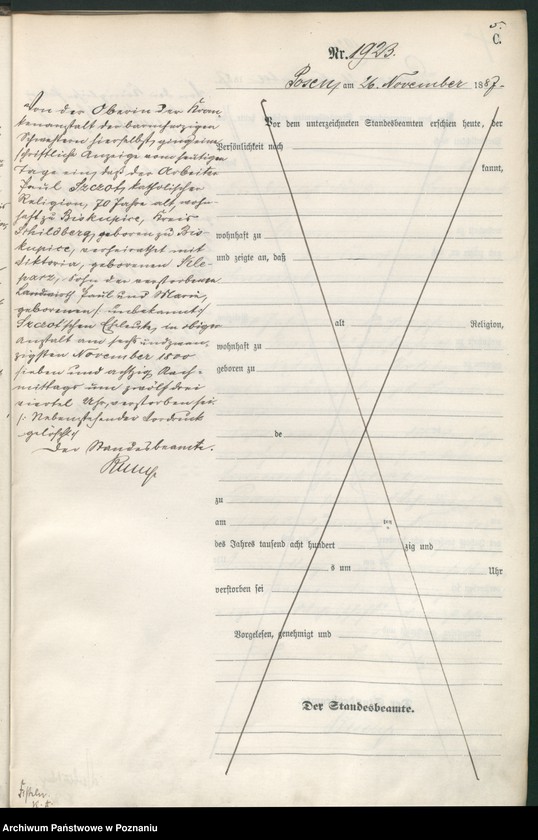 C.
Nr. 1923.
Posen, am 26. November 1887.
Von der Oberin der Kran-
kenanstalt der barmherzigen
Schwestern hierselbst, ging eine
schriftliche Anzeige vom heutigen
Tage ein, daß der Arbeiter
Paul Szczot, katholischer
Religion, 70 Jahre alt, wohn-
haft zu Biskupice, Kreis
Schildberg, geboren zu Bis-
kupice, verheirathet mit
Viktoria, geborenen
Sohn der verstorbenen
Landwirth Paul und Marie,
geborenen /: unbekannt :/
Szczot'schen Eheleute, in obiger
Anstalt am sechsundzwan-
zigsten November 1800
sieben und achtzig Nach-
mittags um zwölf drei
viertel Uhr, verstorben sei.
/: Nebenstehender Vordruck
gelöscht :/
Der Standesbeamte.
Vor dem unterzeichneten Standesbeamten erschien heute, der
Persönlichkeit nach
kannt,
wohnhaft zu
und zeigte an, daß
alt Religion,
wohnhaft zu
geboren zu
de
zu
am ten
des Jahres tausend acht hundert zig und
s um Uhr
verstorben sei
Vorgelesen, genehmigt und
Der Standesbeamte.
Archiwum Państwowe w Poznaniu